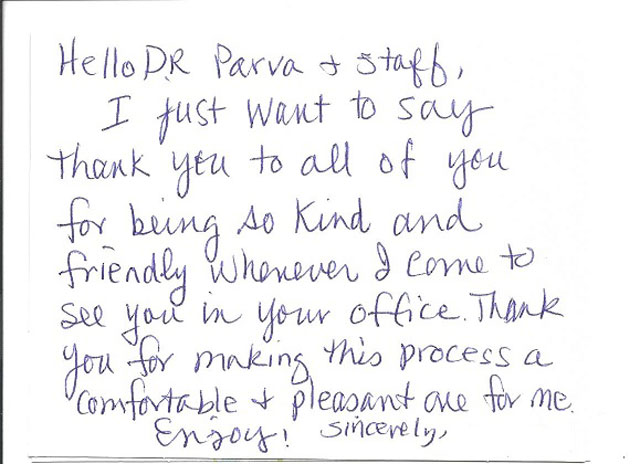 Hello DR Parva & Staff,
I just want to say
thank you to all of you
for being so kind and
friendly whenever I come to
see you in your office. Thank
you for making this process a
comfortable & pleasant one for me.
Enjoy! Sincerely,